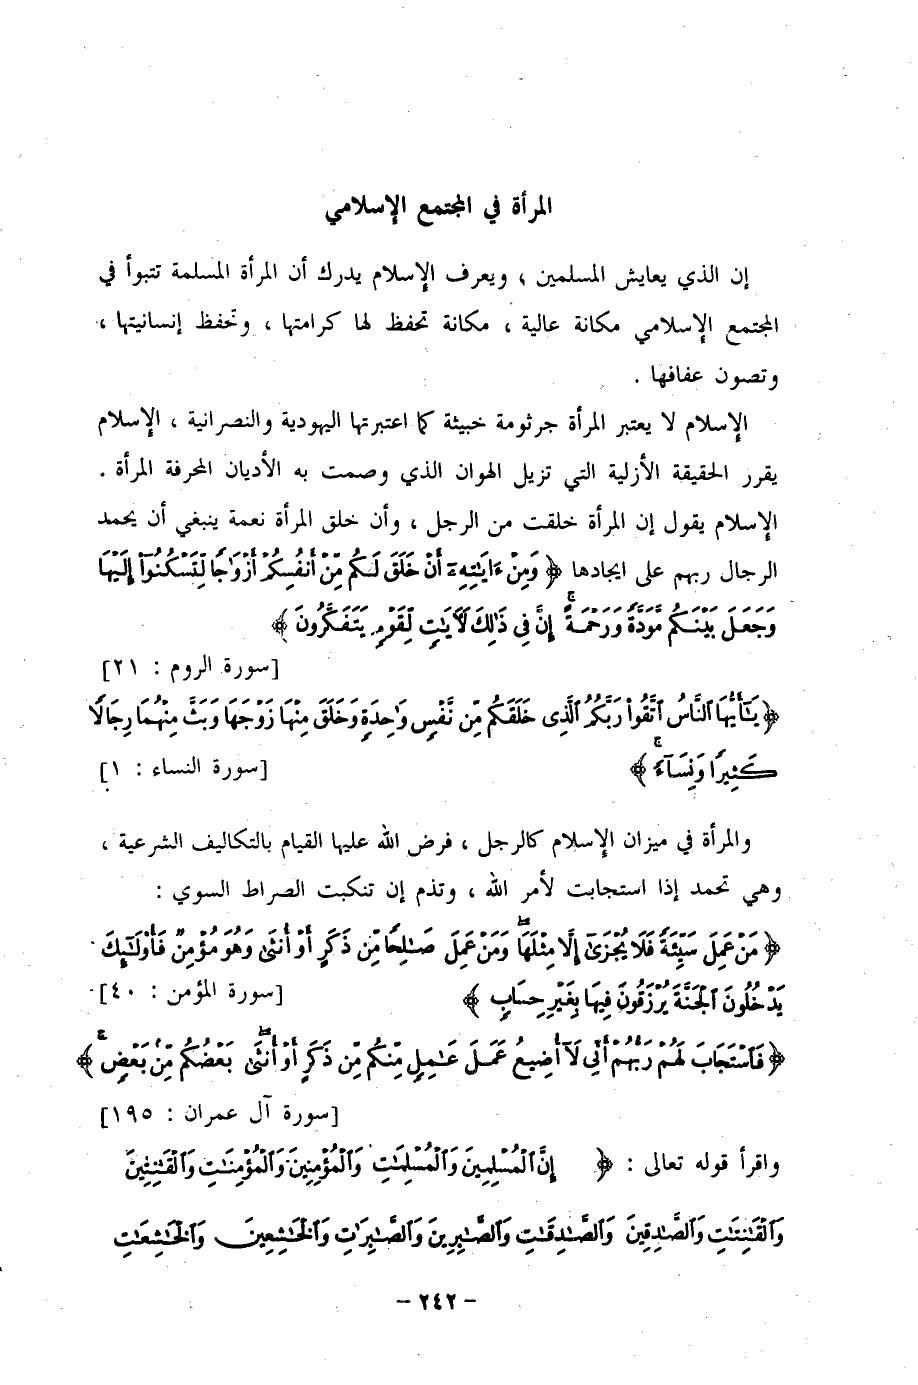 المرأة في المجتمع الإسلامي
إن الذي يعايش المسلمين ، ويعرف الإسلام يدرك أن المرأة المسلمة تتبوأ في
المجتمع الإسلامي مكانة عالية ، مكانة تحفظ لها كرامتها ، وتحفظ إنسانيتها ،
وتصون عفافها .
الإسلام لا يعتبر المرأة جرثومة خبيثة كما اعتبرتها اليهودية والنصرانية ، الإسلام
يقرر الحقيقة الأزلية التي تزيل الهوان الذي وصمت به الأديان المحرفة المرأة .
الإسلام يقول إن المرأة خلقت من الرجل ، وأن خلق المرأة نعمة ينبغي أن يحمد
الرجال ربهم على ايجادها ﴿ وَمِنْ ءَايَٰتِهِۦٓ أَنْ خَلَقَ لَكُم مِّنْ أَنفُسِكُمْ أَزْوَٰجًا لِّتَسْكُنُوٓا۟ إِلَيْهَا
وَجَعَلَ بَيْنَكُم مَّوَدَّةً وَرَحْمَةً ۚ إِنَّ فِى ذَٰلِكَ لَءَايَٰتٍ لِّقَوْمٍ يَتَفَكَّرُونَ ﴾
[سورة الروم : ٢١]
﴿ يَٰٓأَيُّهَا ٱلنَّاسُ ٱتَّقُوا۟ رَبَّكُمُ ٱلَّذِى خَلَقَكُم مِّن نَّفْسٍ وَٰحِدَةٍ وَخَلَقَ مِنْهَا زَوْجَهَا وَبَثَّ مِنْهُمَا رِجَالًا
كَثِيرًا وَنِسَآءً ۚ ﴾ [سورة النساء : ١]
والمرأة في ميزان الإسلام كالرجل ، فرض الله عليها القيام بالتكاليف الشرعية ،
وهي تحمد إذا استجابت لأمر الله ، وتذم إن تنكبت الصراط السوي :
﴿ مَنْ عَمِلَ سَيِّئَةً فَلَا يُجْزَىٰٓ إِلَّا مِثْلَهَا ۖ وَمَنْ عَمِلَ صَٰلِحًا مِّن ذَكَرٍ أَوْ أُنثَىٰ وَهُوَ مُؤْمِنٌ فَأُو۟لَٰٓئِكَ
يَدْخُلُونَ ٱلْجَنَّةَ يُرْزَقُونَ فِيهَا بِغَيْرِ حِسَابٍ ﴾ [سورة المؤمن : ٤٠]
﴿ فَٱسْتَجَابَ لَهُمْ رَبُّهُمْ أَنِّى لَآ أُضِيعُ عَمَلَ عَٰمِلٍ مِّنكُم مِّن ذَكَرٍ أَوْ أُنثَىٰ ۖ بَعْضُكُم مِّنۢ بَعْضٍ ۚ ﴾
[سورة آل عمران : ١٩٥]
واقرأ قوله تعالى : ﴿ إِنَّ ٱلْمُسْلِمِينَ وَٱلْمُسْلِمَٰتِ وَٱلْمُؤْمِنِينَ وَٱلْمُؤْمِنَٰتِ وَٱلْقَٰنِتِينَ
وَٱلْقَٰنِتَٰتِ وَٱلصَّٰدِقِينَ وَٱلصَّٰدِقَٰتِ وَٱلصَّٰبِرِينَ وَٱلصَّٰبِرَٰتِ وَٱلْخَٰشِعِينَ وَٱلْخَٰشِعَٰتِ
- ٢٤٢ -